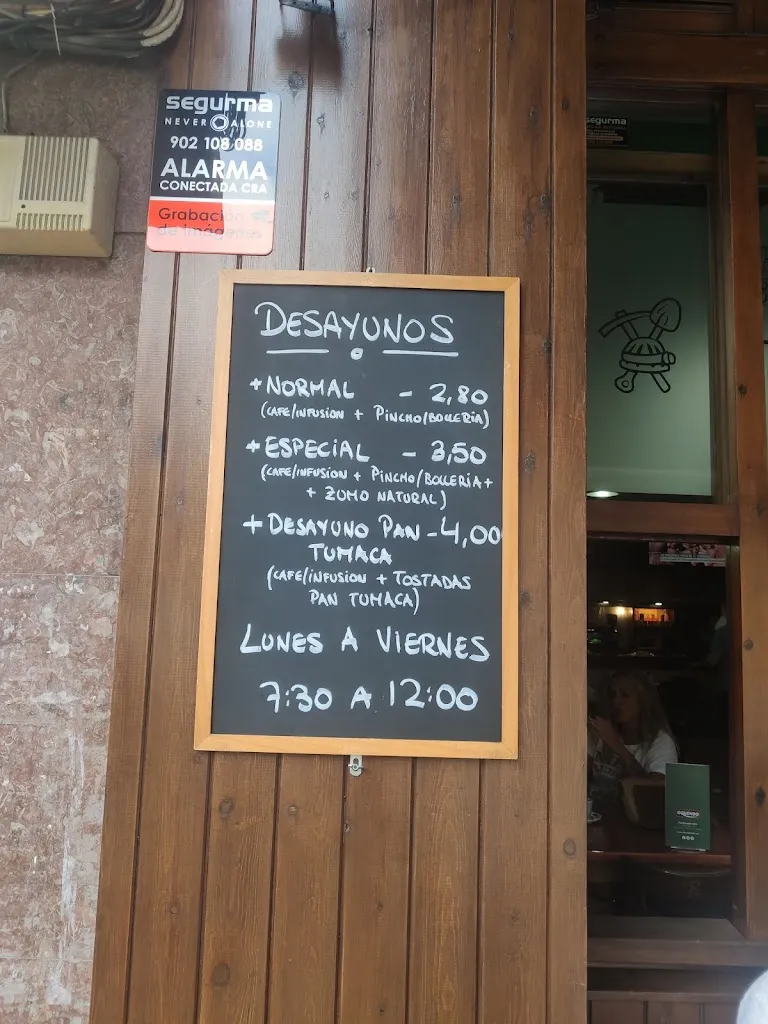 segurma
NEVER ALONE
902 108 088
ALARMA
CONECTADA CRA
Grabación
de imágenes
segurma
DESAYUNOS
+ NORMAL - 2,80
(CAFE/INFUSION + PINCHO/BOLLERIA)
+ ESPECIAL - 3,50
(CAFE/INFUSION + PINCHO/BOLLERIA +
+ ZUMO NATURAL)
+ DESAYUNO PAN - 4,00
TUMACA
(CAFE/INFUSION + TOSTADAS
PAN TUMACA)
LUNES A VIERNES
7:30 A 12:00